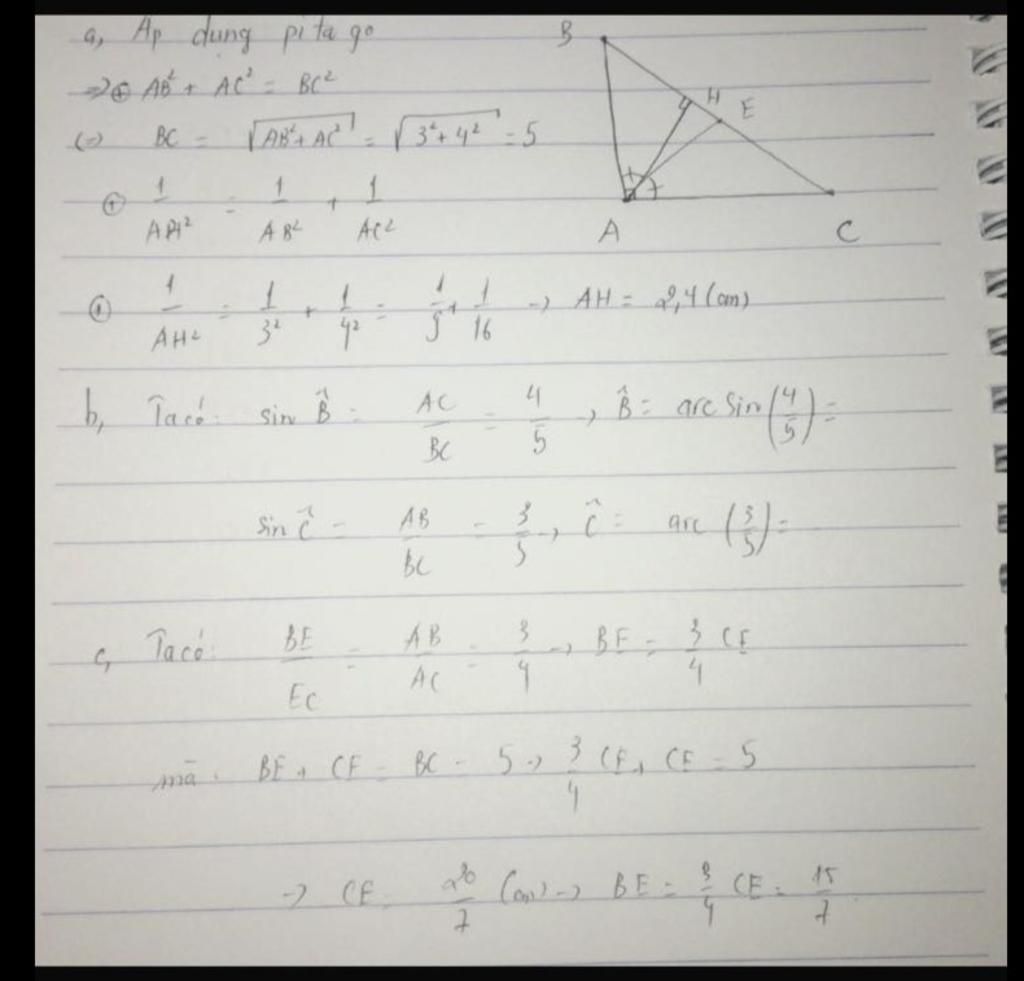 a, Áp dụng pitago
B
=> ⊕ AB² + AC² = BC²
H
E
(=) BC = √(AB²+AC²) = √(3²+4²) = 5
⊕ 1/AH² = 1/AB² + 1/AC²
A
C
⊕ 1/AH² = 1/3² + 1/4² = 1/9 + 1/16 → AH = 2,4 (cm)
b, Ta có: sin B̂ = AC/BC = 4/5 → B̂ = arc sin(4/5) =
sin Ĉ = AB/BC = 3/5 → Ĉ = arc (3/5) =
c, Ta có: BE/EC = AB/AC = 3/4 → BE = 3/4 CE
mà: BE + CE = BC = 5 → 3/4 CE + CE = 5
→ CE = 20/7 (cm) → BE = 3/4 CE = 15/7